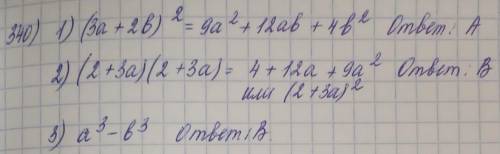 340) 1) (3a + 2b)² = 9a² + 12ab + 4b² Ответ: А
2) (2+3a)(2+3a) = 4 + 12a + 9a² Ответ: В
или (2+3a)²
3) a³ - b³ Ответ: В.